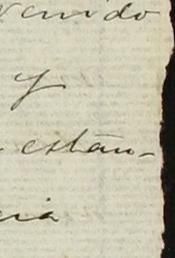 venido
y
están-
cia